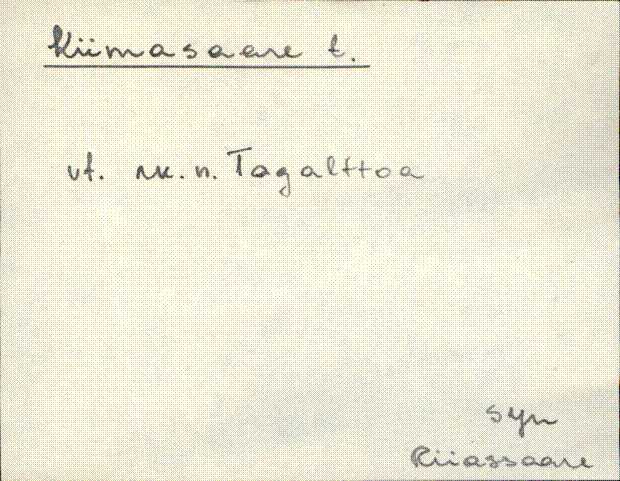 Kiimasaare t.
vt. rk. n. Tagalttoa
syn
Riiassaare